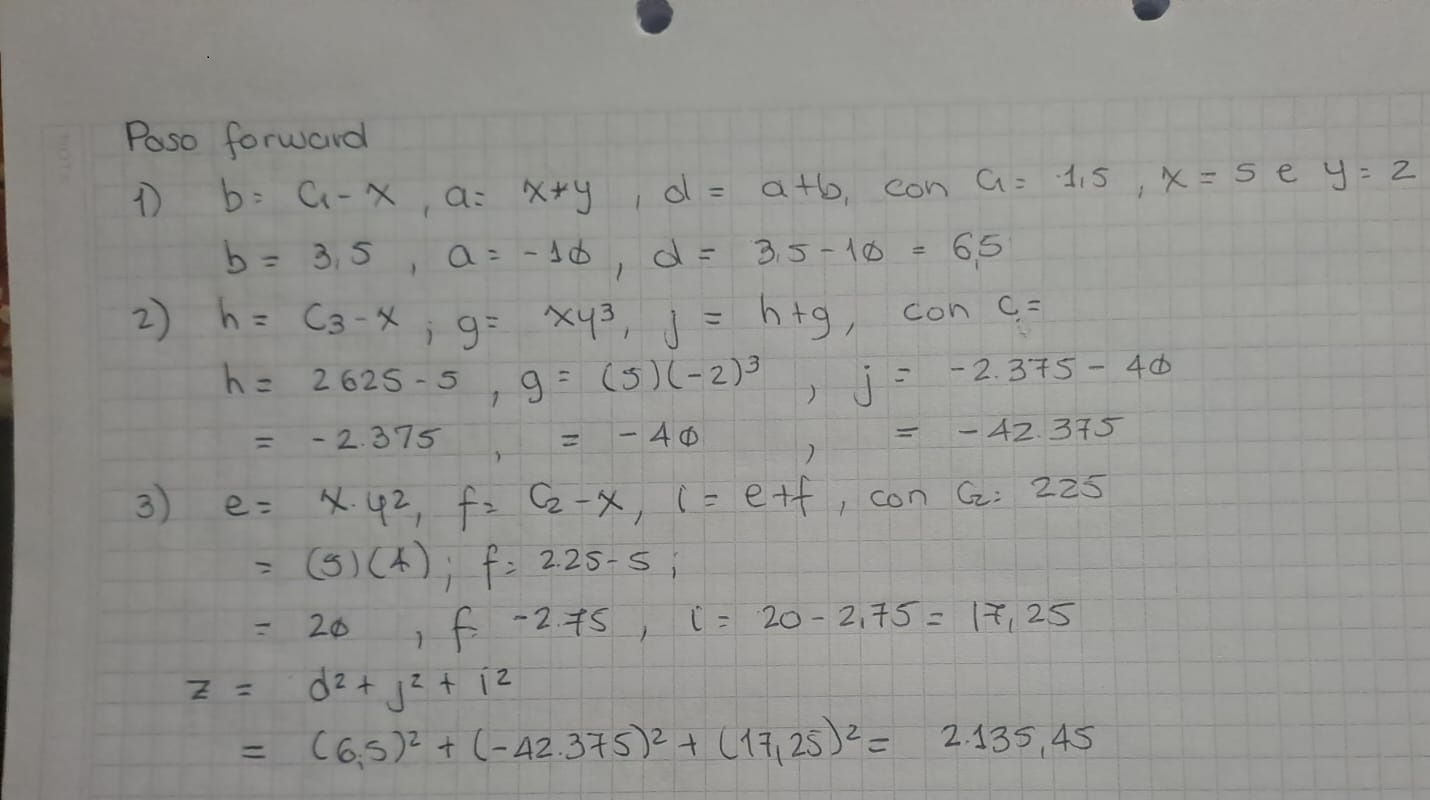 Paso forward
1) b = C1 - x , a = x*y , d = a+b, con C1 = 1,5 , x = 5 e y = 2
b = 3,5 , a = -10 , d = 3,5 - 10 = 6,5
2) h = C3 - x ; g = xy³, j = h+g, con C3 =
h = 2625 - 5 , g = (5)(-2)³ , j = -2.375 - 40
= -2.375 , = -40 , = -42.375
3) e = x·y², f = C2 - x, i = e+f , con C2 = 225
= (5)(4) ; f = 2.25 - 5 ;
= 20 , f = -2.75 , i = 20 - 2,75 = 17,25
z = d² + j² + i²
= (6,5)² + (-42.375)² + (17,25)² = 2.135,45